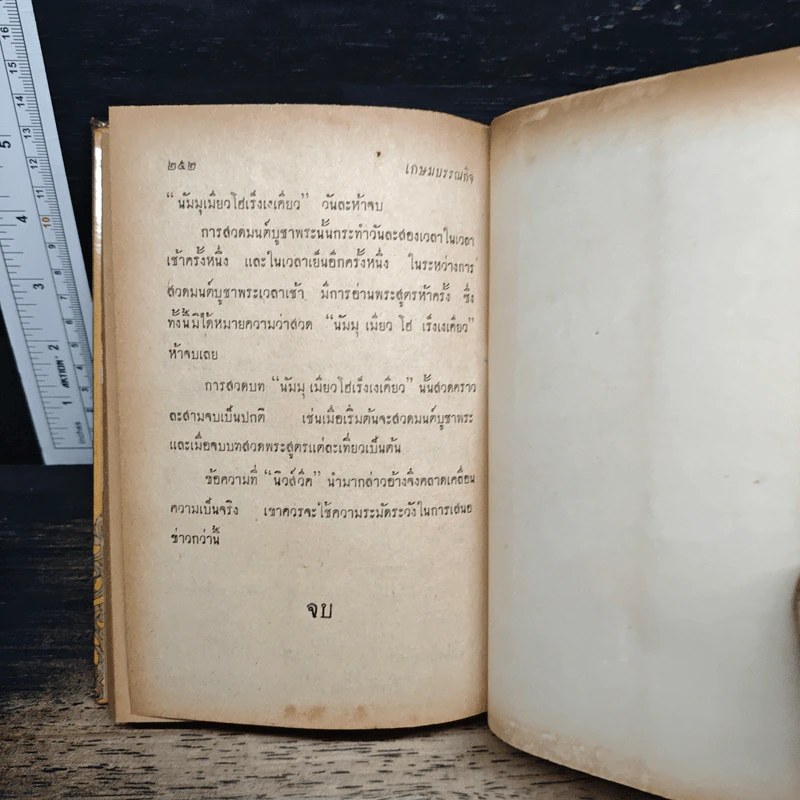 ๒๕๒ เกษมบรรณกิจ
“นัมมุเมียวโฮเร็งเงเคียว” วันละห้าจบ
การสวดมนต์บูชาพระนั้นกระทำวันละสองเวลาในเวลา
เช้าครั้งหนึ่ง และในเวลาเย็นอีกครั้งหนึ่ง ในระหว่างการ
สวดมนต์บูชาพระเวลาเช้า มีการอ่านพระสูตรห้าครั้ง ซึ่ง
ทั้งนี้มิได้หมายความว่าสวด “นัมมุ เมียว โฮ เร็งเงเคียว”
ห้าจบเลย
การสวดบท “นัมมุ เมียวโฮเร็งเงเคียว” นั้นสวดคราว
ละสามจบเป็นปกติ เช่นเมื่อเริ่มต้นจะสวดมนต์บูชาพระ
และเมื่อจบบทสวดพระสูตรแต่ละเที่ยวเป็นต้น
ข้อความที่ “นิวส์วีค” นำมากล่าวอ้างจึงคลาดเคลื่อน
ความเป็นจริง เขาควรจะใช้ความระมัดระวังในการเสนอ
ข่าวกว่านี้
จบ
16
15
14
13
12
11
10
9
8
7
6
5
4
3
2
1
5
4
3
2
1
AKTION
Inches